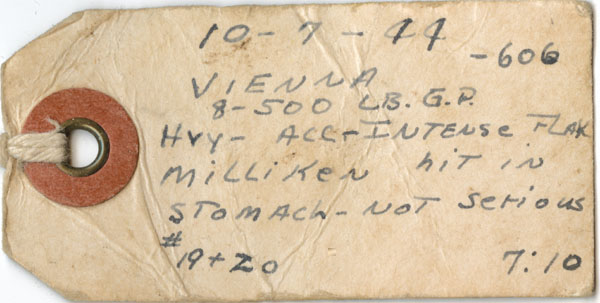 10-7-44
-606
VIENNA
8-500 LB. G.P.
Hvy- ACC-INTENSE FLAK
Milliken hit in
STOMACH-NOT Serious
# 19+20 7:10